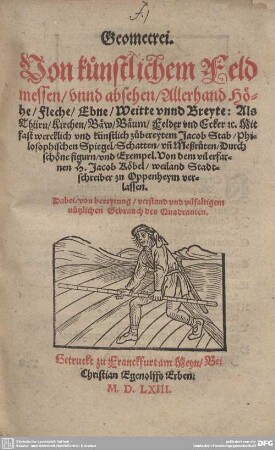 Geometrei.
Von künstlichem Feld
messen/vnnd absehen/Allerhand Hö-
he/Fleche/Ebne/Weitte vnnd Breyte: Als
Thürn/Kirchen/Bäw/Bäum/Felder vnd Ecker ꝛc. Mit
fast wercklich vnd künstlich zůbereytem Jacob Stab/Phi-
losophischen Spiegel/Schatten/vñ Meßrůten/Durch
schöne figurn/vnd Exempel. Von dem vilerfar-
nen H. Jacob Köbel/weiland Stadt-
schreiber zu Oppenheym ver-
lassen.
Dabei/von bereytung/verstand vnd vilfaltigem
nützlichen Gebrauch des Quadranten.
Getruckt zu Franckfurt am Meyn/Bei
Christian Egenolffs Erben.
M. D. LXIII.